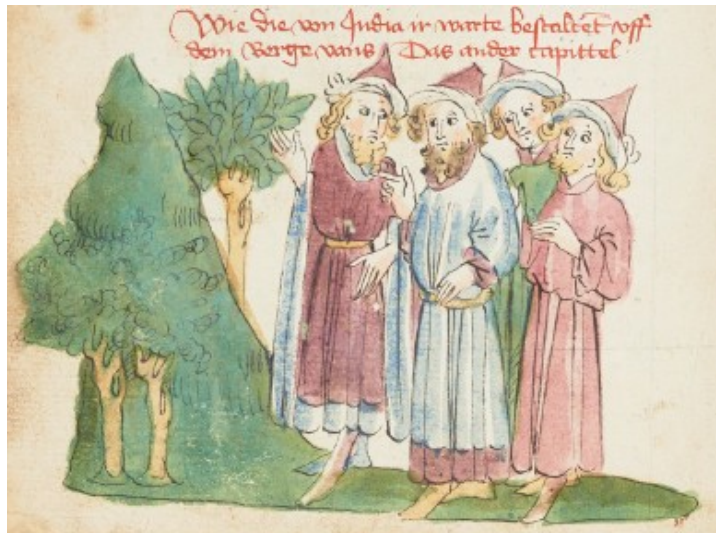 Wie die von India ir warte bestaltet uff
dem Berge vaus Das ander capittel